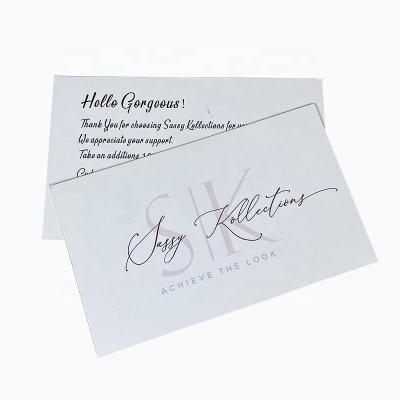 Hello Gorgeous!
Thank You for choosing Sassy Kollections for
We appreciate your support.
Take an additions
S|K
Sassy Kollections
ACHIEVE THE LOOK